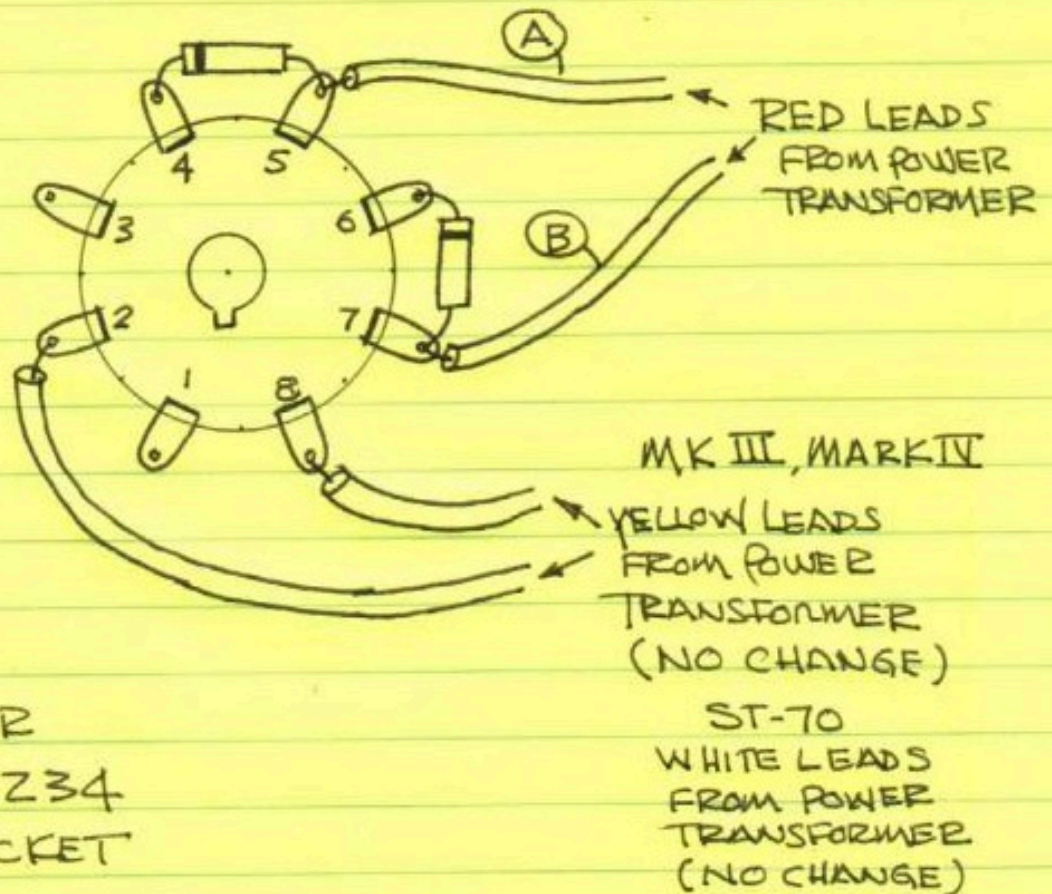 A
RED LEADS
FROM POWER
TRANSFORMER
4 5
3 6
B
2 7
1 8
MK III, MARK IV
YELLOW LEADS
FROM POWER
TRANSFORMER
(NO CHANGE)
ST-70
WHITE LEADS
FROM POWER
TRANSFORMER
(NO CHANGE)
R
234
CKET